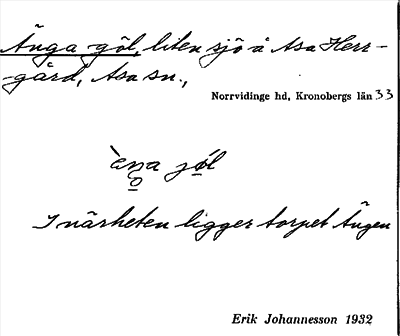 Änga göl, liten sjö å Asa Herr-
gård, Asa sn.,
Norrvidinge hd, Kronobergs län 33
I närheten ligger torpet Ängen
Erik Johannesson 1932